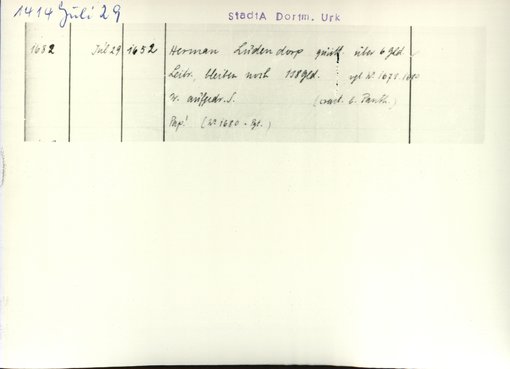 1414 Juli 29
StadtA Dortm. Urk
1652 Jul 29 1652 Herman Lüdendorp quitt. über 6 Gld.
Leibr., bleiben noch 118 Gld. vgl. Nr. 1679. 1680
w. aufgedr. S.
Pap. (Nr 1680 -